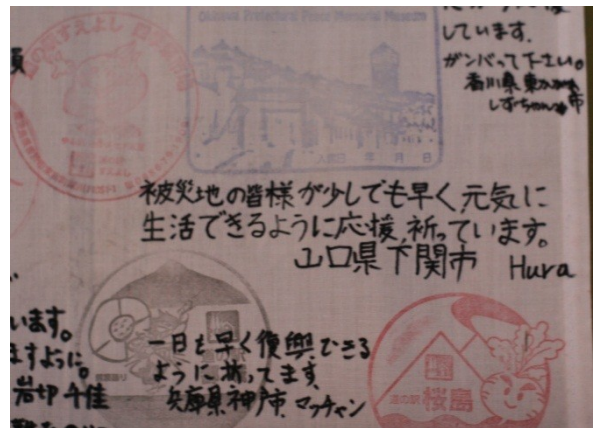 Okinawa Prefectural Peace Memorial Museum
しています。
ガンバって下さい。
香川県東かがわ市
しずちゃん
入館日 年 月 日
被災地の皆様が少しでも早く、元気に
生活できるように応援、祈っています。
山口県下関市 Hura
います。
ますように。
岩切千佳
一日も早く復興できる
ように祈ってます。
兵庫県神戸市 マッチャン
道の駅 桜島